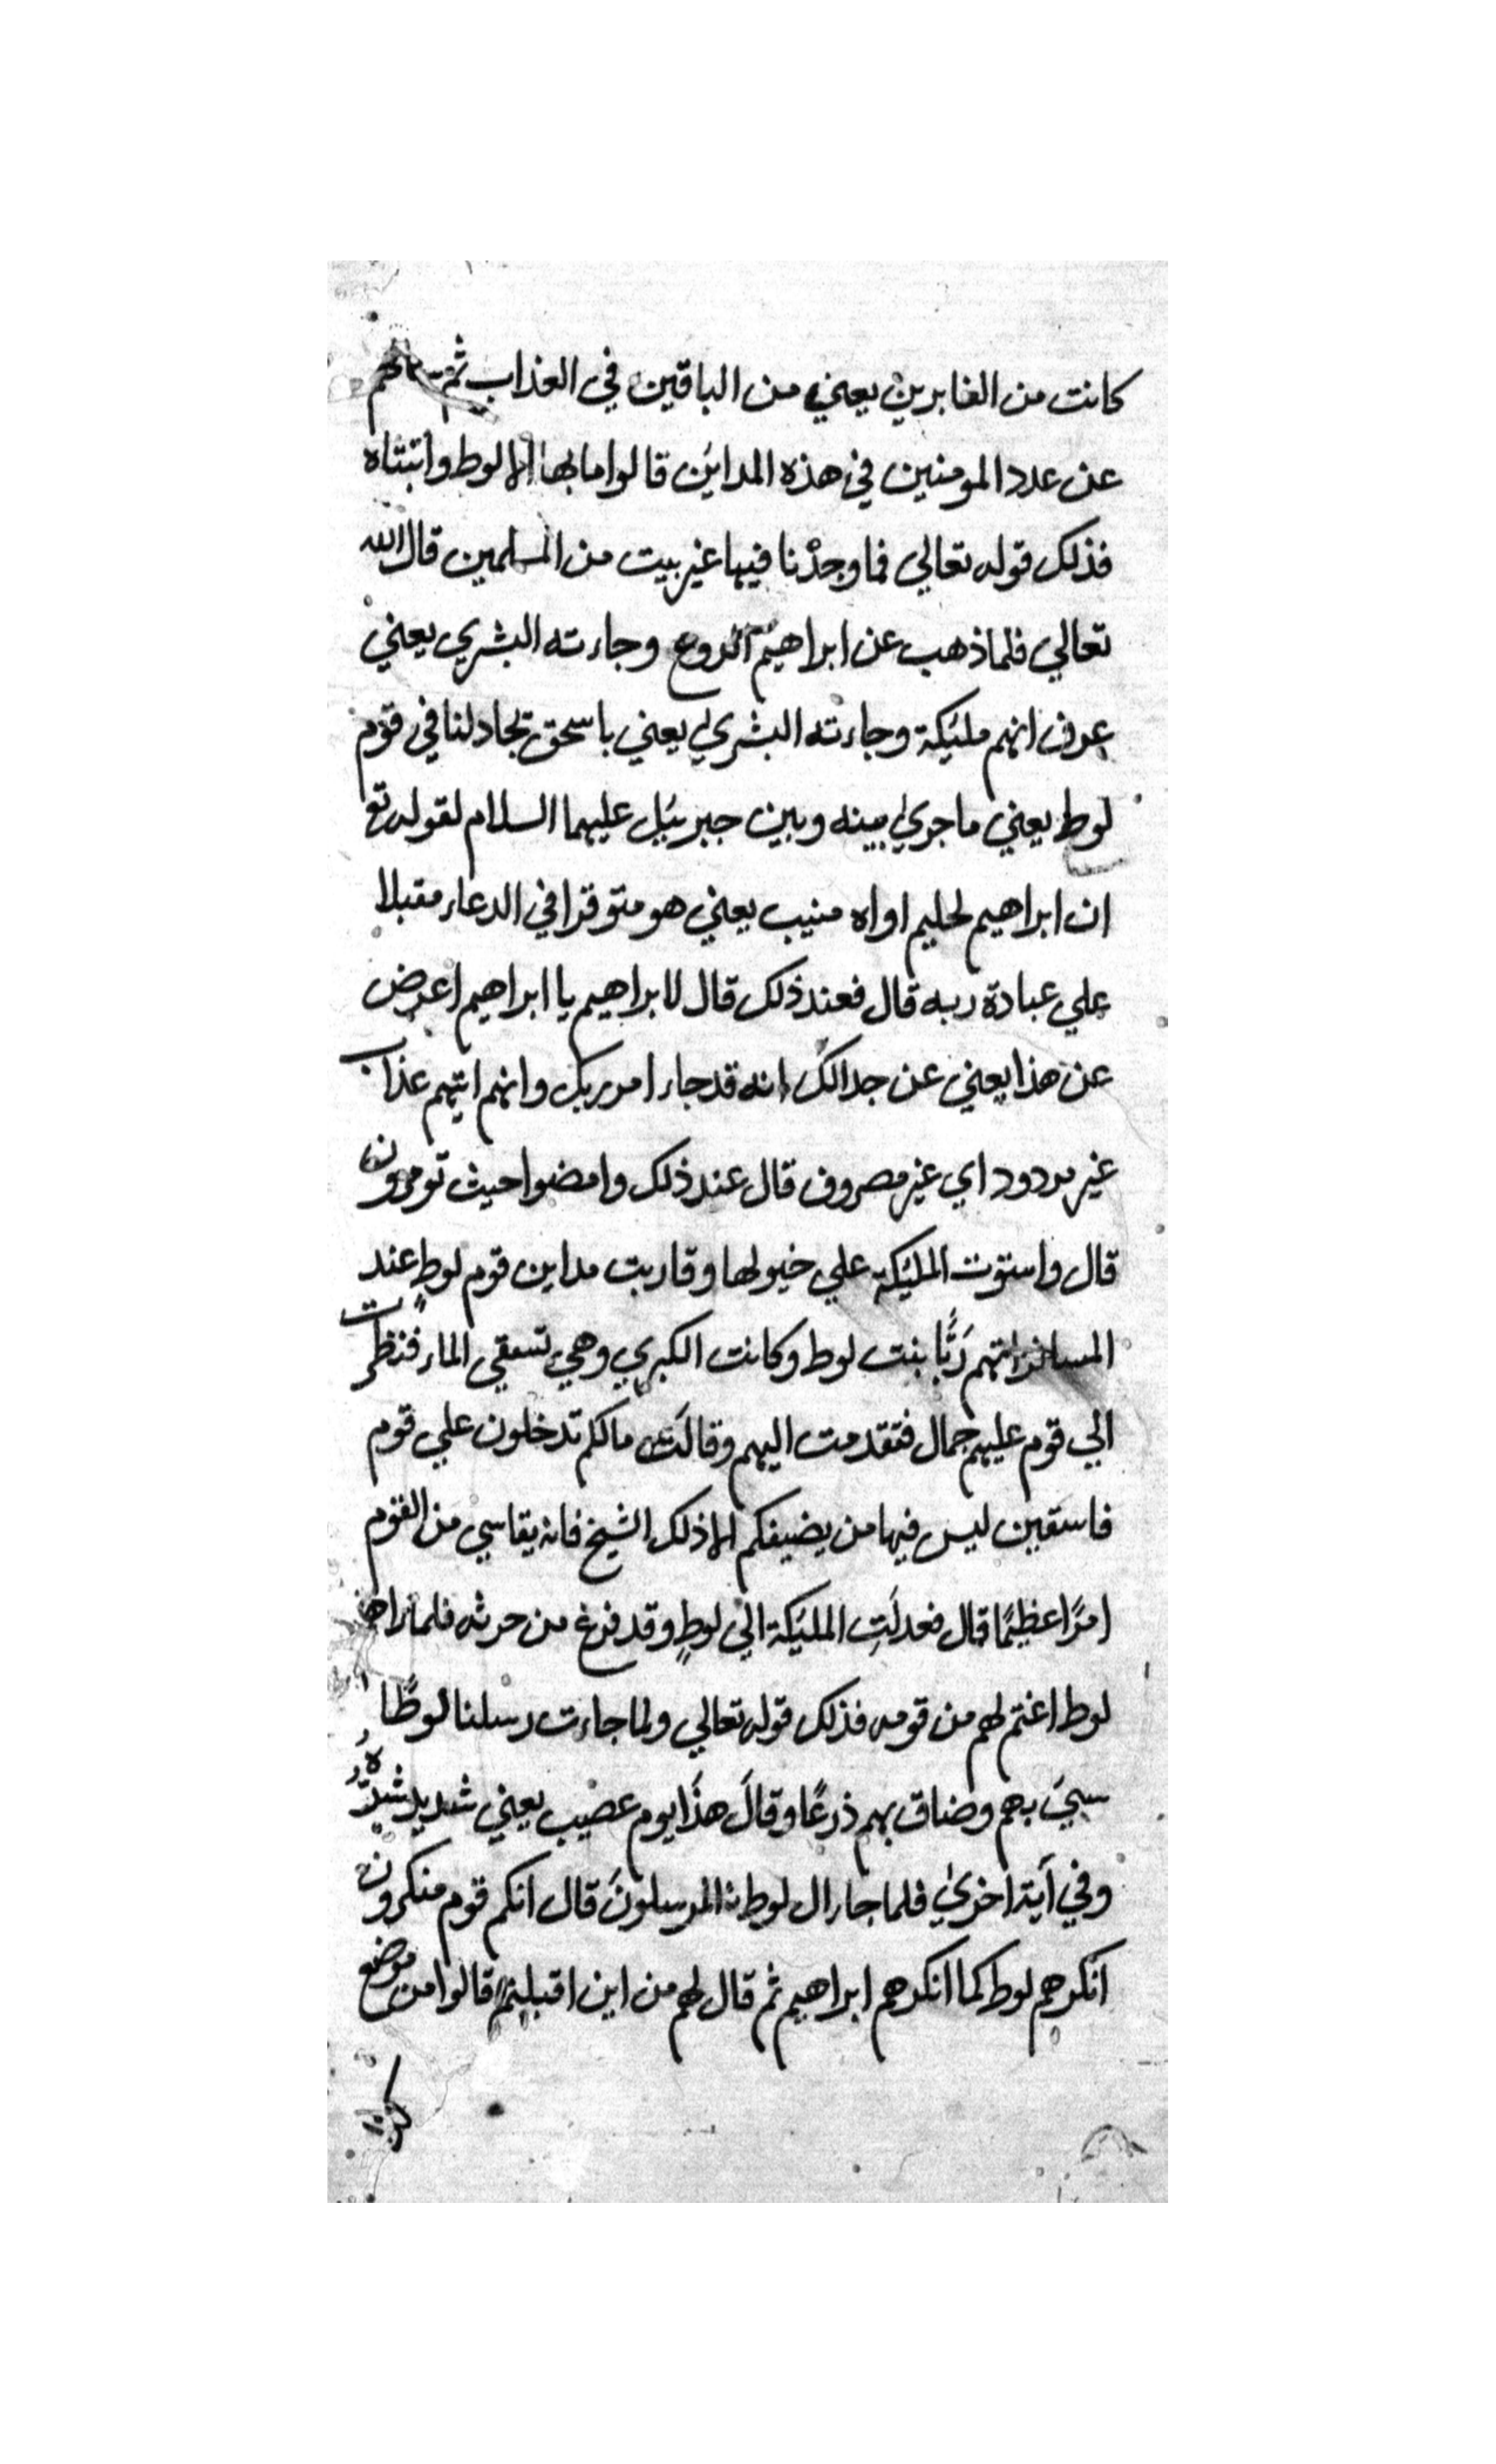 كانت من الغابرين يعني من الباقين في العذاب ثم سالهم
عن عدد المومنين في هذه المداين قالوا ما بها الا لوط وابنتاه
فذلك قوله تعالي فما وجدْنا فيها غير بيت من المسلمين قال الله
تعالي فلما ذهب عن ابراهيم الروع وجاءته البشري يعني
عرف انهم مليكة وجاءته البشري يعني باسحق يجادلنا في قوم
لوط يعني ما جري بينه وبين جبرييل عليهما السلام لقوله تع
ان ابراهيم لحليم اواه منيب يعني هو متوقرا في الدعاء مقبلا
علي عبادة ربه قال فعند ذلك قال لابراهيم يا ابراهيم اعرض
عن هذا يعني عن جدالك انه قد جاء امر ربك وانهم اتيهم عذاب
غير مردود اي غير مصروف قال عند ذلك وامضوا حيث تومرون
قال واستوت المليكة علي خيولها وقاربت مداين قوم لوطٍ عند
المسا فراتهم رَبًّا بنت لوط وكانت الكبري وهي تسقي الماء فنظرت
الي قوم عليهم جمال فتقدمت اليهم وقالَت ما لكم تدخلون علي قوم
فاسقين ليس فيها من يضيفكم الا ذلك الشيخ فانه يقاسي من القوم
امرًا عظيمًا قال فعدلَتِ المليكة الي لوطٍ وقد فرغ من حرثه فلما راها
لوط اغتم لهم من قومه فذلك قوله تعالي ولما جاءت رسلنا لوطًا
سيَ بهم وضاق بهم ذرعًا وقالَ هذَا يوم عصيب يعني شديد شدّة
وفي آية اخريٰ فلما جاء ال لوط المرسلونَ قال انكم قوم منكرون
انكرهم لوط كما انكرهم ابراهيم ثم قال لهم من اين اقبلتم قالوا من موضع